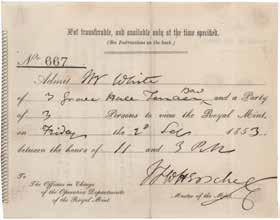 Not transferable, and available only at the time specified.
(See Instructions on the back.)
No. 667
Admit Mr White
of 3 Grove Terrace and a Party
of 3 Persons to view the Royal Mint,
on Friday the 2d 1853
between the hours of 11 and 3 P.M.
To
The Officers in Charge
of the Operative Departments
of the Royal Mint.
JFW Herschel
Master of the Mint.